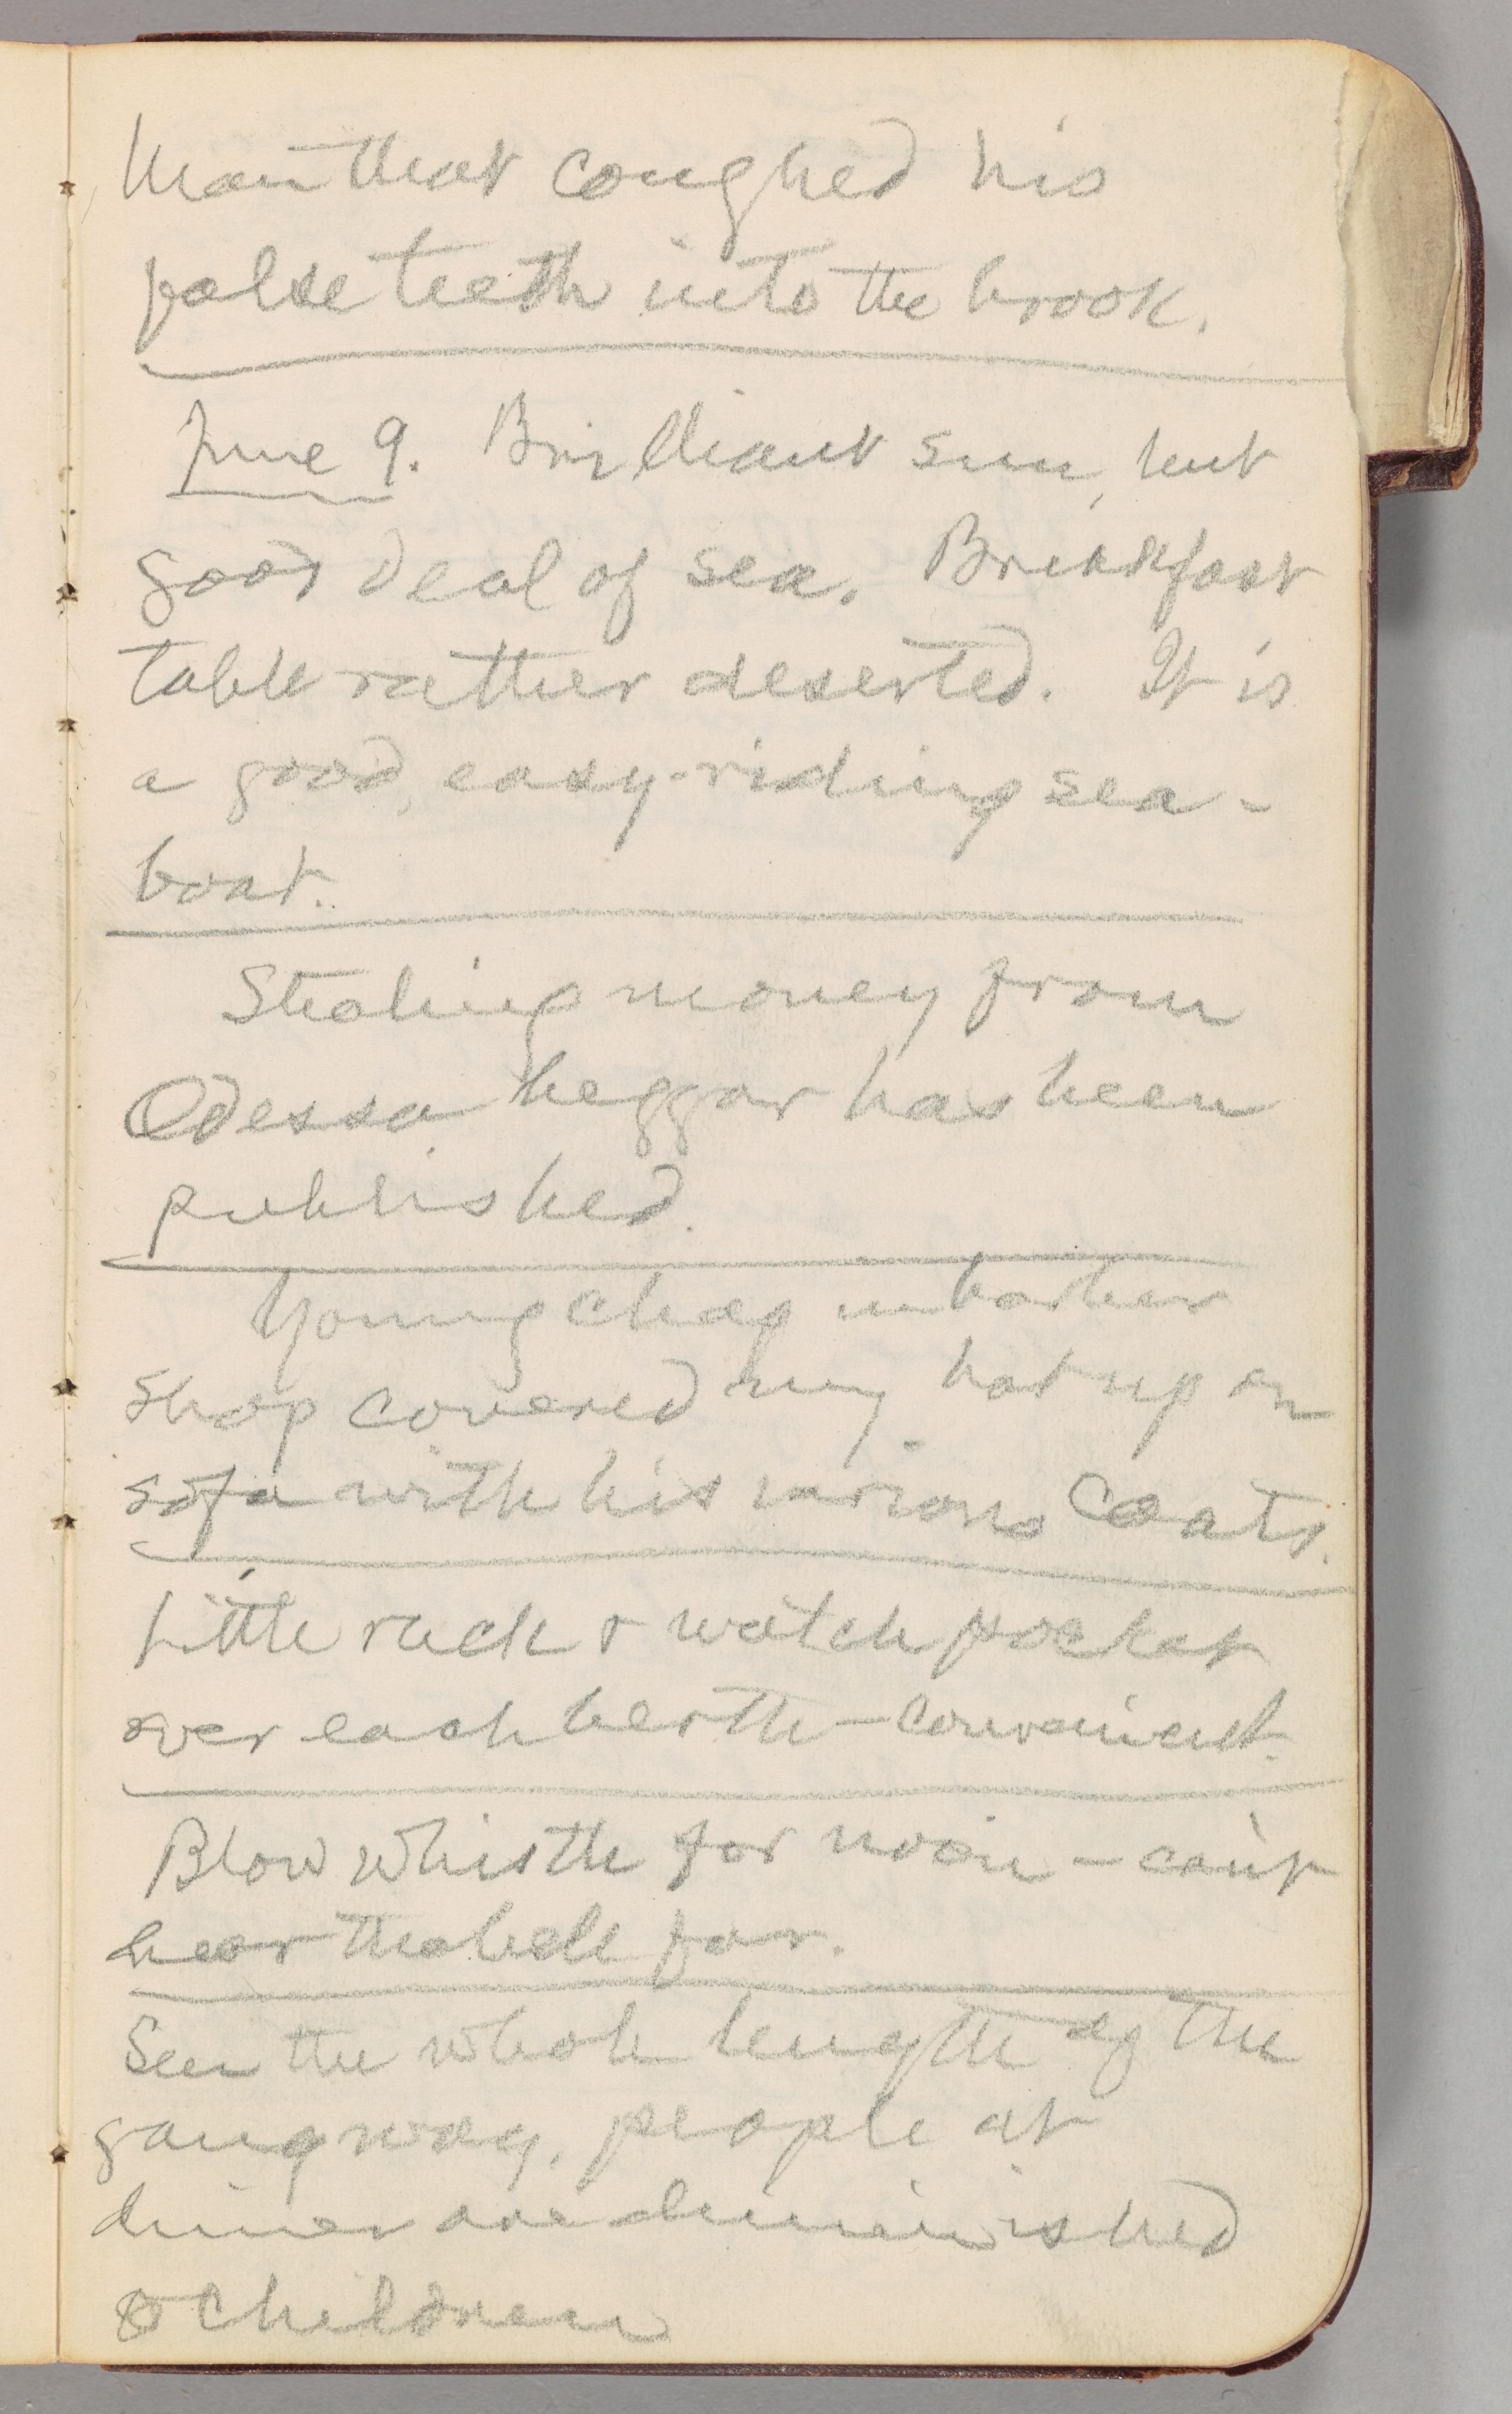 Man that coughed his
false teeth into the brook.
June 9. Brilliant sun, but
good deal of sea. Breakfast
table rather deserted. It is
a good, easy-riding sea-
boat.
Stealing money from
Odessa beggar has been
published.
Young chap in barber
shop covered my hat up on
sofa with his various coats.
Little rack & watch pocket
over each berth—convenient.
Blow whistle for noon—can't
hear the bell far.
Seen the whole length of the
gangway, people at
dinner are diminished
to children